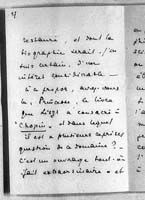 et dont la
biographie serait, j'en
suis certain, d'un
intérêt considérable —
A ce propos, avez-vous
lu, Princesse, le livre
que Liszt a consacré à
"Chopin", et dans lequel
il est à plusieurs reprises
question de la domaine ?
C'est un ouvrage tout-à-
fait extraordinaire et